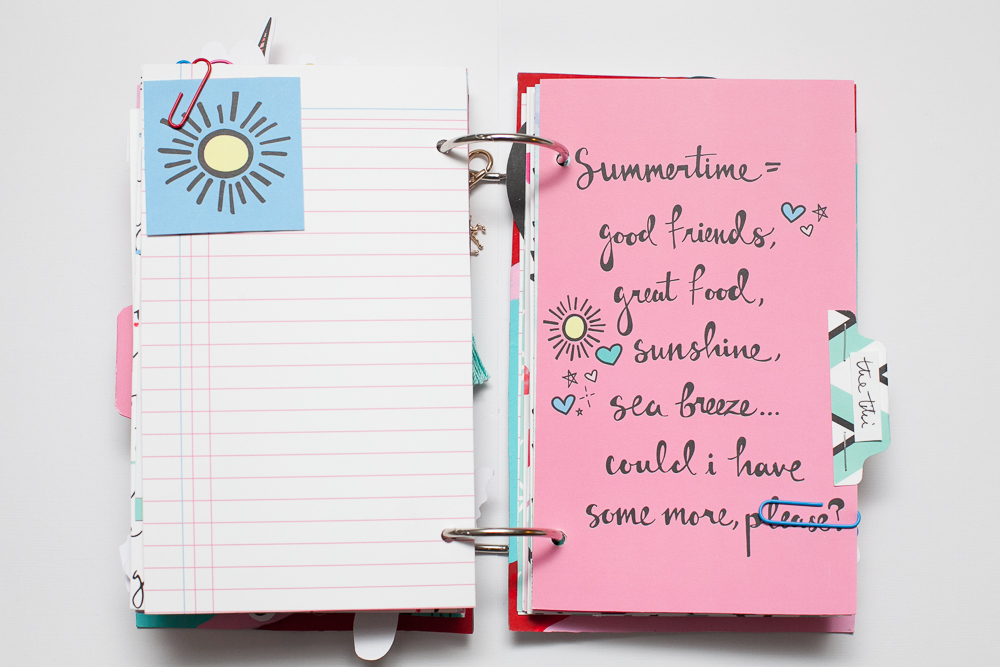 Summertime =
good friends,
great food,
sunshine,
sea breeze...
could i have
some more, please?
the thi